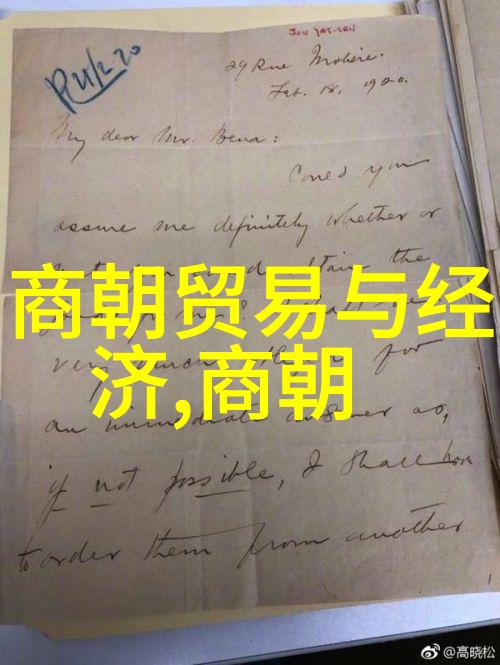 SUN YAT-SEN
R 21/2.20
29 Rue Molière.
Feb. 18, 1920.
My dear Mr. Bena:
Could you
assure me definitely whether or
the
商朝贸易与经
济,商朝
very for
an immediate answer as,
if not possible, I shall have
to order them from another
@高晓松